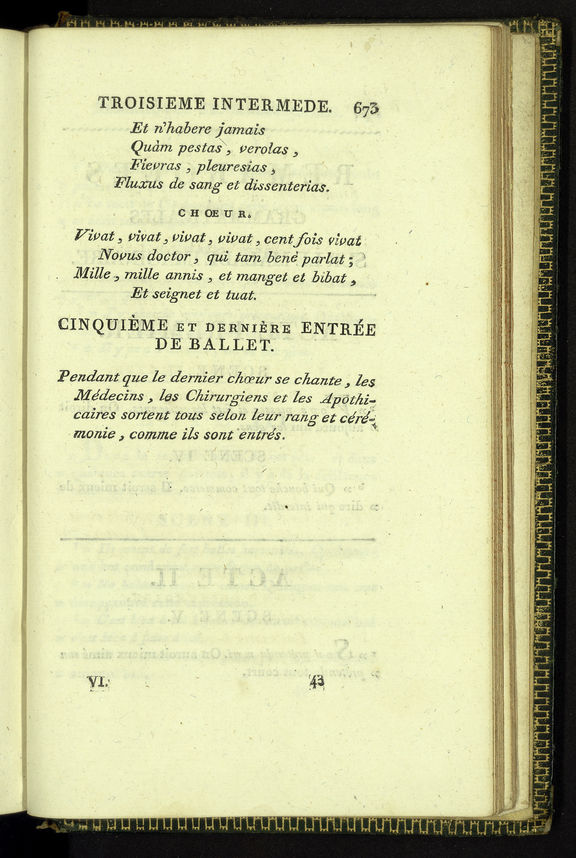 TROISIEME INTERMEDE. 673
Et n'habere jamais
Quàm pestas, verolas,
Fievras, pleuresias,
Fluxus de sang et dissenterias.
CHŒUR.
Vivat, vivat, vivat, vivat, cent fois vivat
Novus doctor, qui tam benè parlat;
Mille, mille annis, et manget et bibat,
Et seignet et tuat.
CINQUIÈME ET DERNIÈRE ENTRÉE
DE BALLET.
Pendant que le dernier chœur se chante, les
Médecins, les Chirurgiens et les Apothi-
caires sortent tous selon leur rang et céré-
monie, comme ils sont entrés.
VI. 43